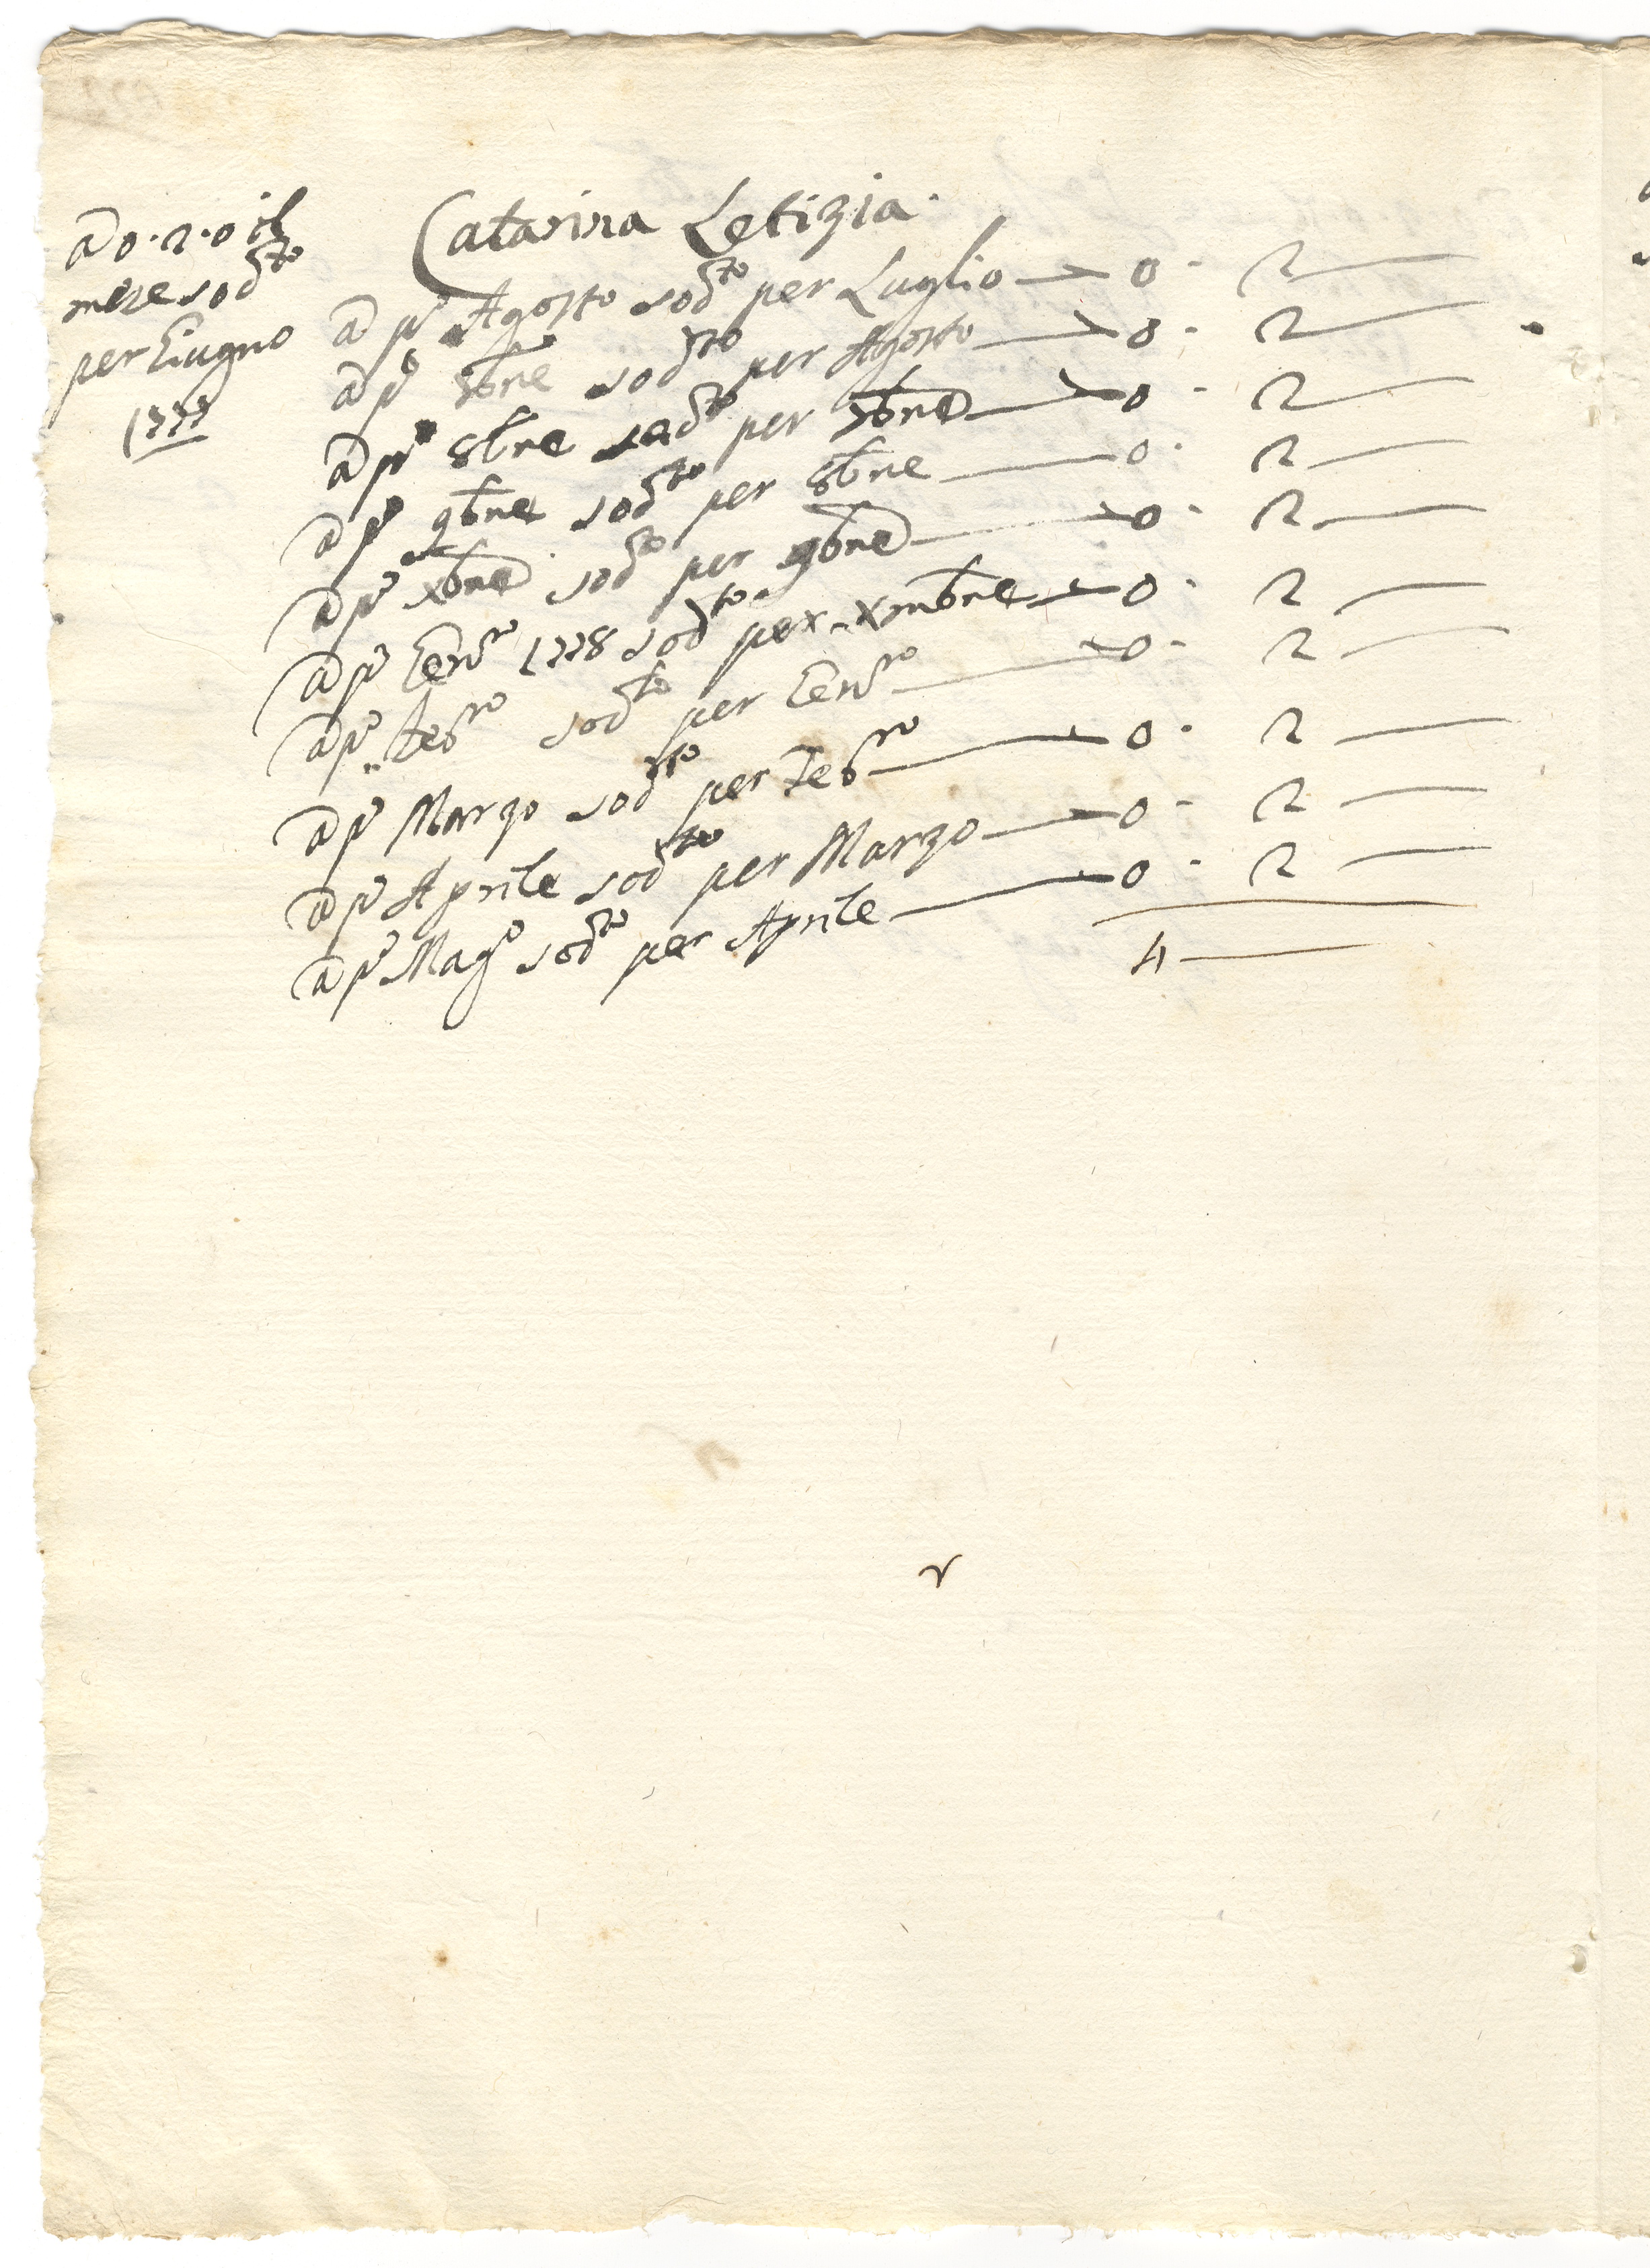 Catarina Letizia.
a 0.2.0 il
mese sodto
per Giugno
1777
a po Agosto sodto per Luglio — 0 - 2 —
a po 7bre sodto per Agosto — 0 - 2 —
a po 8bre sodto per 7bre — 0 - 2 —
a po 9bre sodto per 8bre — 0 - 2 —
a po xbre sodto per 9bre — 0 - 2 —
a po Genro 1778 sodto per xmbre — 0 - 2 —
a po Febro sodto per Genro — 0 - 2 —
a po Marzo sodto per Febro — 0 - 2 —
a po Aprile sodto per Marzo — 0 - 2 —
a po Mago sodto per Aprile — 0 - 2 —
4 —